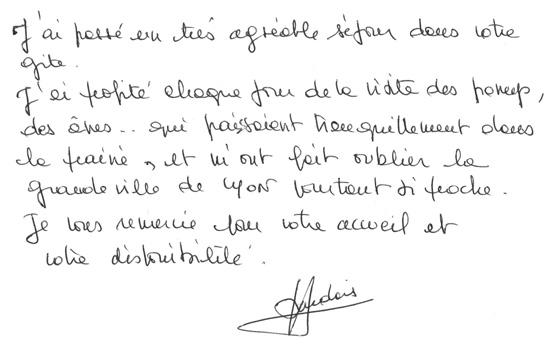 J'ai passé un très agréable séjour dans votre
gîte.
J'ai profité chaque jour de la visite des poneys,
des ânes.. qui paissaient tranquillement dans
la prairie, et m'ont fait oublier la
grande ville de Lyon pourtant si proche.
Je vous remercie pour votre accueil et
votre disponibilité.